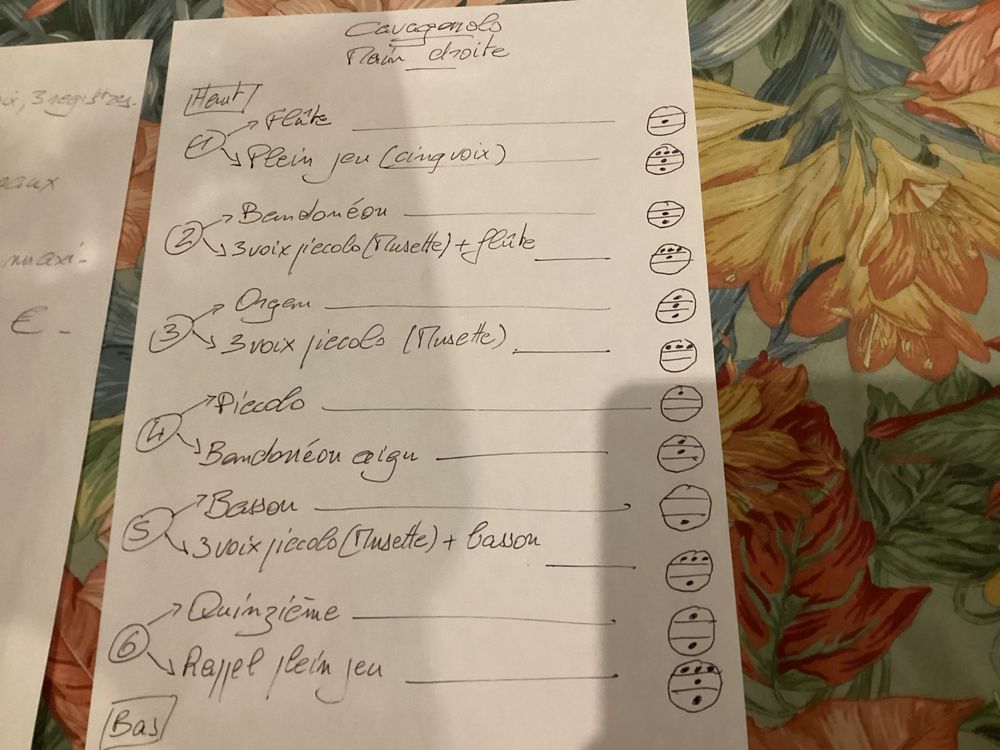 Cavagnolo
Main droite
Haut
1 Flûte
Plein jeu (cinq voix)
2 Bandonéon
3 voix piccolo (Musette) + flûte
3 Organ
3 voix piccolo (Musette)
4 Piccolo
Bandonéon aigu
5 Basson
3 voix piccolo (Musette) + basson
6 Quinzième
Rappel plein jeu
Bas
3 registres.
maxi-
€ -